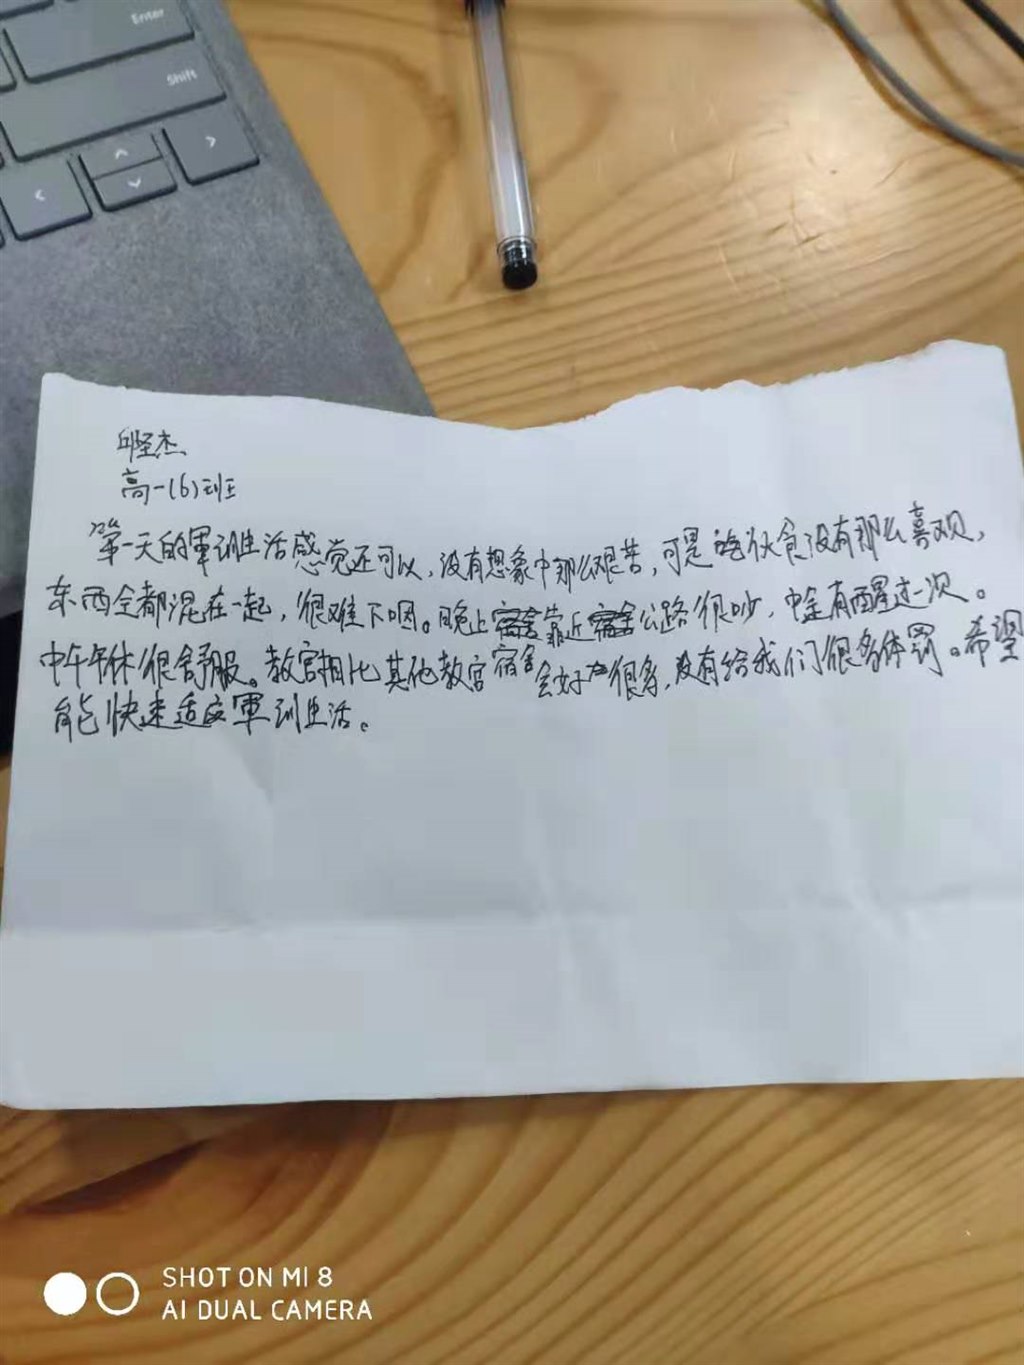 Enter
Shift
邱坚杰
高一(6)班
第一天的軍训生活感觉还可以，没有想象中那么艰苦，可是吃伙食没有那么喜观，
东西全都混在一起，很难下咽。晚上靠近公路很吵，中途有醒过一次。
中午午休很舒服。教官相比其他教官会好很多，没有给我们很多体罚。希望
能快速适应軍训生活。
SHOT ON MI 8
AI DUAL CAMERA